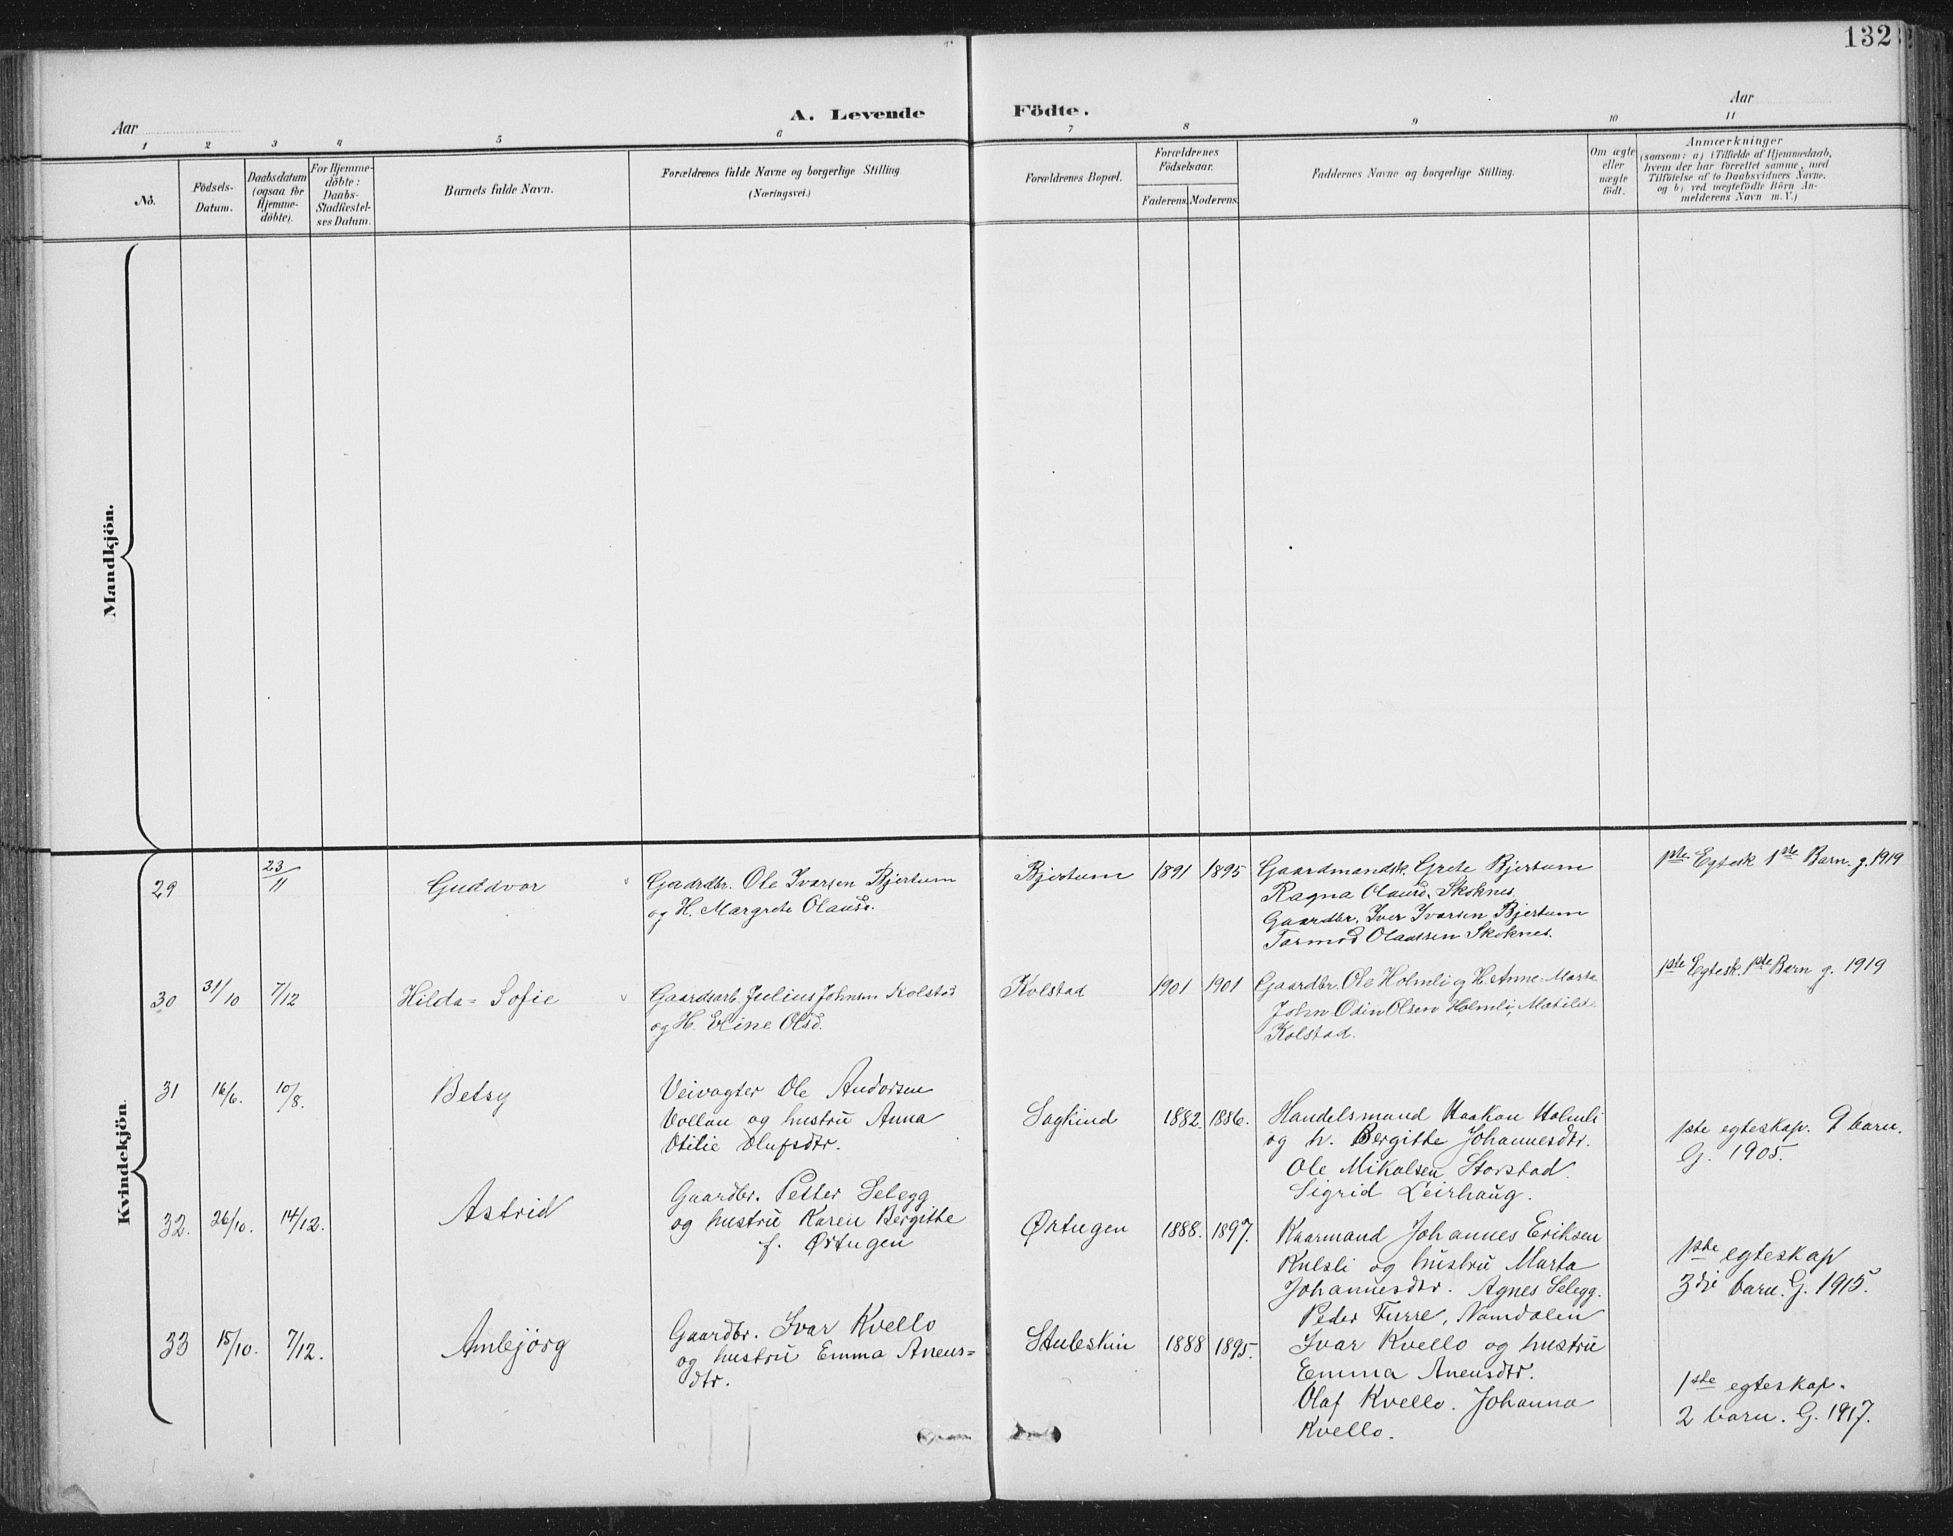 132
Aar
A. Levende Födte.
Aar
1 2 3 4 5 6 7 8 9 10 11
No.
Födsels-
Datum.
Daabsdatum
(ogsaa for
Hjemme-
döbte).
For Hjemme-
döbte:
Daabs-
Stadfæstel-
ses Datum.
Barnets fulde Navn.
Forældrenes fulde Navne og borgerlige Stilling
(Næringsvei.)
Forældrenes Bopæl.
Forældrenes
Födselsaar.
Faderens. Moderens.
Faddernes Navne og borgerlige Stilling.
Om ægte
eller
uægte
födt.
Anmærkninger
(saasom: a) i Tilfælde af Hjemmedaab,
hvem der har forrettet samme, med
Tilföielse af to Daabsvidners Navne,
og b) ved uægtefödte Börn An-
melderens Navn m. V.)
Mandkjön.
Kvindekjön.
29
23/11
Guddvor
Gaardbr. Ole Ivarsen Bjertum
og H. Margrete Olausd.
Bjertum
1891
1895
Gaardmandsk. Grete Bjertum
Ragna Olausd. Skoknes.
Gaardbr. Iver Ivarsen Bjertum
Tormod Olaussen Skoknes.
1ste Egtesk 1ste Barn. g. 1919
30
31/10
7/12
Hilda-Sofie
Gaardsarb. Julius Johnsen Kolstad
og H. Eline Olsd.
Kolstad
1901
1901
Gaardbr. Ole Holmli og H. Anne-Marta
John Odin Olsen Holmli, Matilde
Kolstad.
1ste Egtesk. 1ste Barn g. 1919
31
16/6.
10/8.
Betsy
Veivogter Ole Andorsen
Vollan og hustru Anna
Otilie Olufsdtr.
Saghind
1882.
1886.
Handelsmand Haakon Holmli
og h. Bergitte Johannesdtr.
Ole Mikalsen Storstad.
Sigrid Leirhaug.
1ste egteskap. 9 barn.
G. 1905.
32.
26/10.
14/12.
Astrid
Gaardbr. Petter Selegg
og hustru Karen Bergitte
f. Ørtugen
Ørtugen
1888.
1897.
Kaarmand Johannes Eriksen
Kulsli og hustru Marta
Johannesdtr. Agnes Selegg.
Peder Furre, Namdalen
1ste egteskap
3die barn. G. 1915.
33
15/10.
7/12.
Anbjörg
Gaardbr. Ivar Kvello
og hustru Emma Anens=
dtr.
Stuleskin
1888
1895.
Ivar Kvello og hustru
Emma Anensdtr.
Olaf Kvello. Johanna
Kvello.
1ste egteskap.
2 barn. G. 1917.